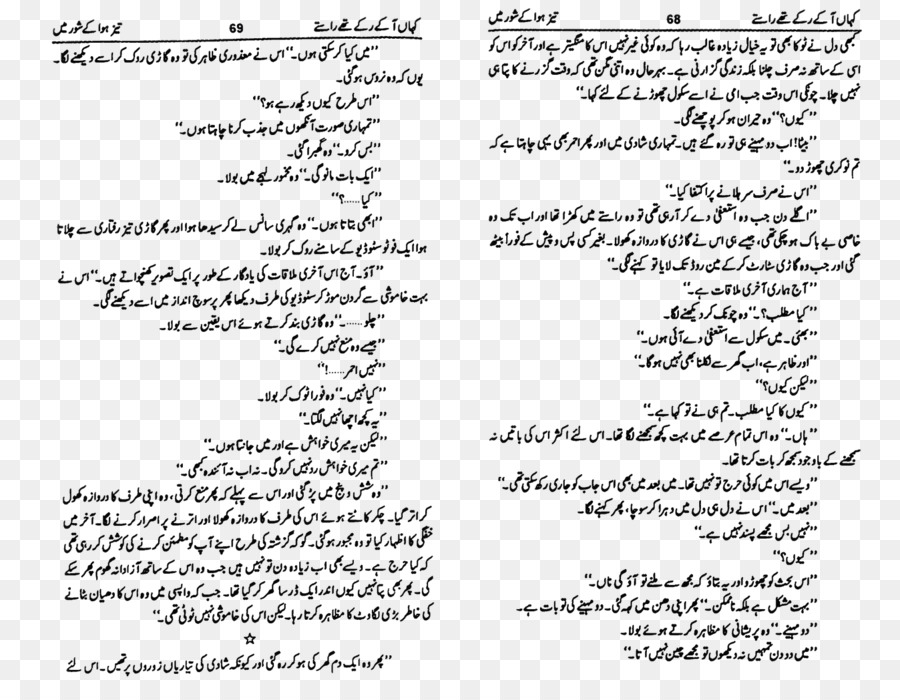 کہاں آ کے رکے تھے راستے 68 تیز ہوا کے شور میں
کبھی دل نے ٹوکا بھی تو یہ خیال زیادہ غالب رہا کہ وہ کوئی غیر نہیں اس کا منگیتر ہے اور آخر کو اس کو
اسی کے ساتھ نہ صرف چلنا بلکہ زندگی گزارنی ہے۔ بہرحال وہ اتنی مگن تھی کہ وقت گزرنے کا پتا ہی
نہیں چلا۔ چونکی اس وقت جب امی نے اسے سکول چھوڑنے کے لئے کہا۔“
’’کیوں؟‘‘ وہ حیران ہو کر پوچھنے لگی۔
’’بیٹا! اب دو مہینے ہی تو رہ گئے ہیں۔ تمہاری شادی میں اور پھر احمر بھی یہی چاہتا ہے کہ
تم نوکری چھوڑ دو۔‘‘
’’اس نے صرف سر ہلانے پر اکتفا کیا۔‘‘
’’اگلے دن جب وہ استعفیٰ دے کر آ رہی تھی تو وہ راستے میں کھڑا تھا اور اب تک وہ
خاصی بے باک ہو چکی تھی، جیسے ہی اس نے گاڑی کا دروازہ کھولا۔ بغیر کسی پس و پیش کے فوراً بیٹھ
گئی اور جب وہ گاڑی سٹارٹ کر کے مین روڈ تک لایا تو کہنے لگی۔‘‘
’’آج ہماری آخری ملاقات ہے۔‘‘
’’کیا مطلب؟۔‘‘ وہ چونک کر دیکھنے لگا۔
’’بھئی۔ میں سکول سے استعفیٰ دے آئی ہوں۔‘‘
’’اور ظاہر ہے، اب گھر سے نکلنا بھی نہیں ہوگا۔‘‘
’’لیکن کیوں؟‘‘
’’کیوں کا کیا مطلب۔ تم ہی نے تو کہا ہے۔‘‘
’’ہاں۔‘‘ وہ اس تمام عرصے میں بہت کچھ سمجھنے لگا تھا۔ اس لئے اکثر اس کی باتیں نہ
سمجھنے کے باوجود سمجھ کر بات کرتا تھا۔
’’ویسے اس میں کوئی حرج تو نہیں تھا۔ میں بعد میں بھی اس جاب کو جاری رکھ سکتی تھی۔‘‘
’’بعد میں۔‘‘ اس نے دل ہی دل میں دہرا کر سوچا، پھر کہنے لگا۔
’’نہیں بس مجھے پسند نہیں ہے۔‘‘
’’کیوں؟‘‘
’’اس بحث کو چھوڑو اور یہ بتاؤ کہ مجھ سے ملنے تو آؤ گی ناں۔‘‘
’’بہت مشکل ہے بلکہ ناممکن۔‘‘ پھر اپنی دھن میں کہہ گئی۔ دو مہینے کی تو بات ہے۔
’’دو مہینے۔‘‘ وہ پریشانی کا مظاہرہ کرتے ہوئے بولا۔
’’میں دو دن تمہیں نہ دیکھوں تو مجھے چین نہیں آتا۔‘‘
کہاں آ کے رکے تھے راستے 69 تیز ہوا کے شور میں
’’میں کیا کر سکتی ہوں۔‘‘ اس نے معذوری ظاہر کی تو وہ گاڑی روک کر اسے دیکھنے لگا۔
یوں کہ وہ نروس ہو گئی۔
’’اس طرح کیوں دیکھ رہے ہو؟‘‘
’’تمہاری صورت آنکھوں میں جذب کرنا چاہتا ہوں۔‘‘
’’بس کرو۔‘‘ وہ گھبرا گئی۔
’’ایک بات مانو گی۔‘‘ وہ مخمور لہجے میں بولا۔
’’کیا......؟‘‘
’’ابھی بتاتا ہوں۔‘‘ وہ گہری سانس لے کر سیدھا ہوا اور پھر گاڑی تیز رفتاری سے چلاتا
ہوا ایک فوٹو سٹوڈیو کے سامنے روک کر بولا۔
’’آؤ۔ آج اس آخری ملاقات کی یادگار کے طور پر ایک تصویر کھنچواتے ہیں۔‘‘ اس نے
بہت خاموشی سے گردن موڑ کر سٹوڈیو کی طرف دیکھا پھر پرسوچ انداز میں اسے دیکھنے لگی۔
’’چلو......۔‘‘ وہ گاڑی بند کرتے ہوئے اس یقین سے بولا۔
’’جیسے وہ منع نہیں کرے گی۔‘‘
’’نہیں احمر......!‘‘
’’کیا نہیں۔‘‘ وہ فوراً ٹوک کر بولا۔
’’یہ کچھ اچھا نہیں لگتا۔‘‘
’’لیکن یہ میری خواہش ہے اور میں جانتا ہوں۔‘‘
’’تم میری خواہش رد نہیں کرو گی۔ نہ اب نہ آئندہ کبھی۔‘‘
’’وہ شش و پنج میں پڑ گئی اور اس سے پہلے کہ پھر منع کرتی، وہ اپنی طرف کا دروازہ کھول
کر اتر گیا۔ چکر کاٹتے ہوئے اس کی طرف کا دروازہ کھولا اور اترنے پر اصرار کرنے لگا۔ آخر میں
خفگی کا اظہار کیا تو وہ مجبور ہو گئی۔ گو کہ گزشتہ کی طرح اپنے آپ کو مطمئن کرنے کی کوشش کر رہی تھی
کہ کیا حرج ہے۔ ویسے بھی اب زیادہ دن تو نہیں ہیں جب وہ اس کے ساتھ آزادانہ گھوم پھر سکے
گی۔ پھر بھی پتا نہیں کیوں اندر ایک ڈر سا گھر کر گیا تھا۔ جب کہ واپسی میں وہ اس کا دھیان بٹانے
کی خاطر بڑی لگاوٹ کا مظاہرہ کرتا رہا۔ لیکن اس کی خاموشی نہیں ٹوٹی تھی۔‘‘
☆
’’پھر وہ ایک دم گھر کی ہو کر رہ گئی اور کیونکہ شادی کی تیاریاں زوروں پر تھیں۔ اس لئے